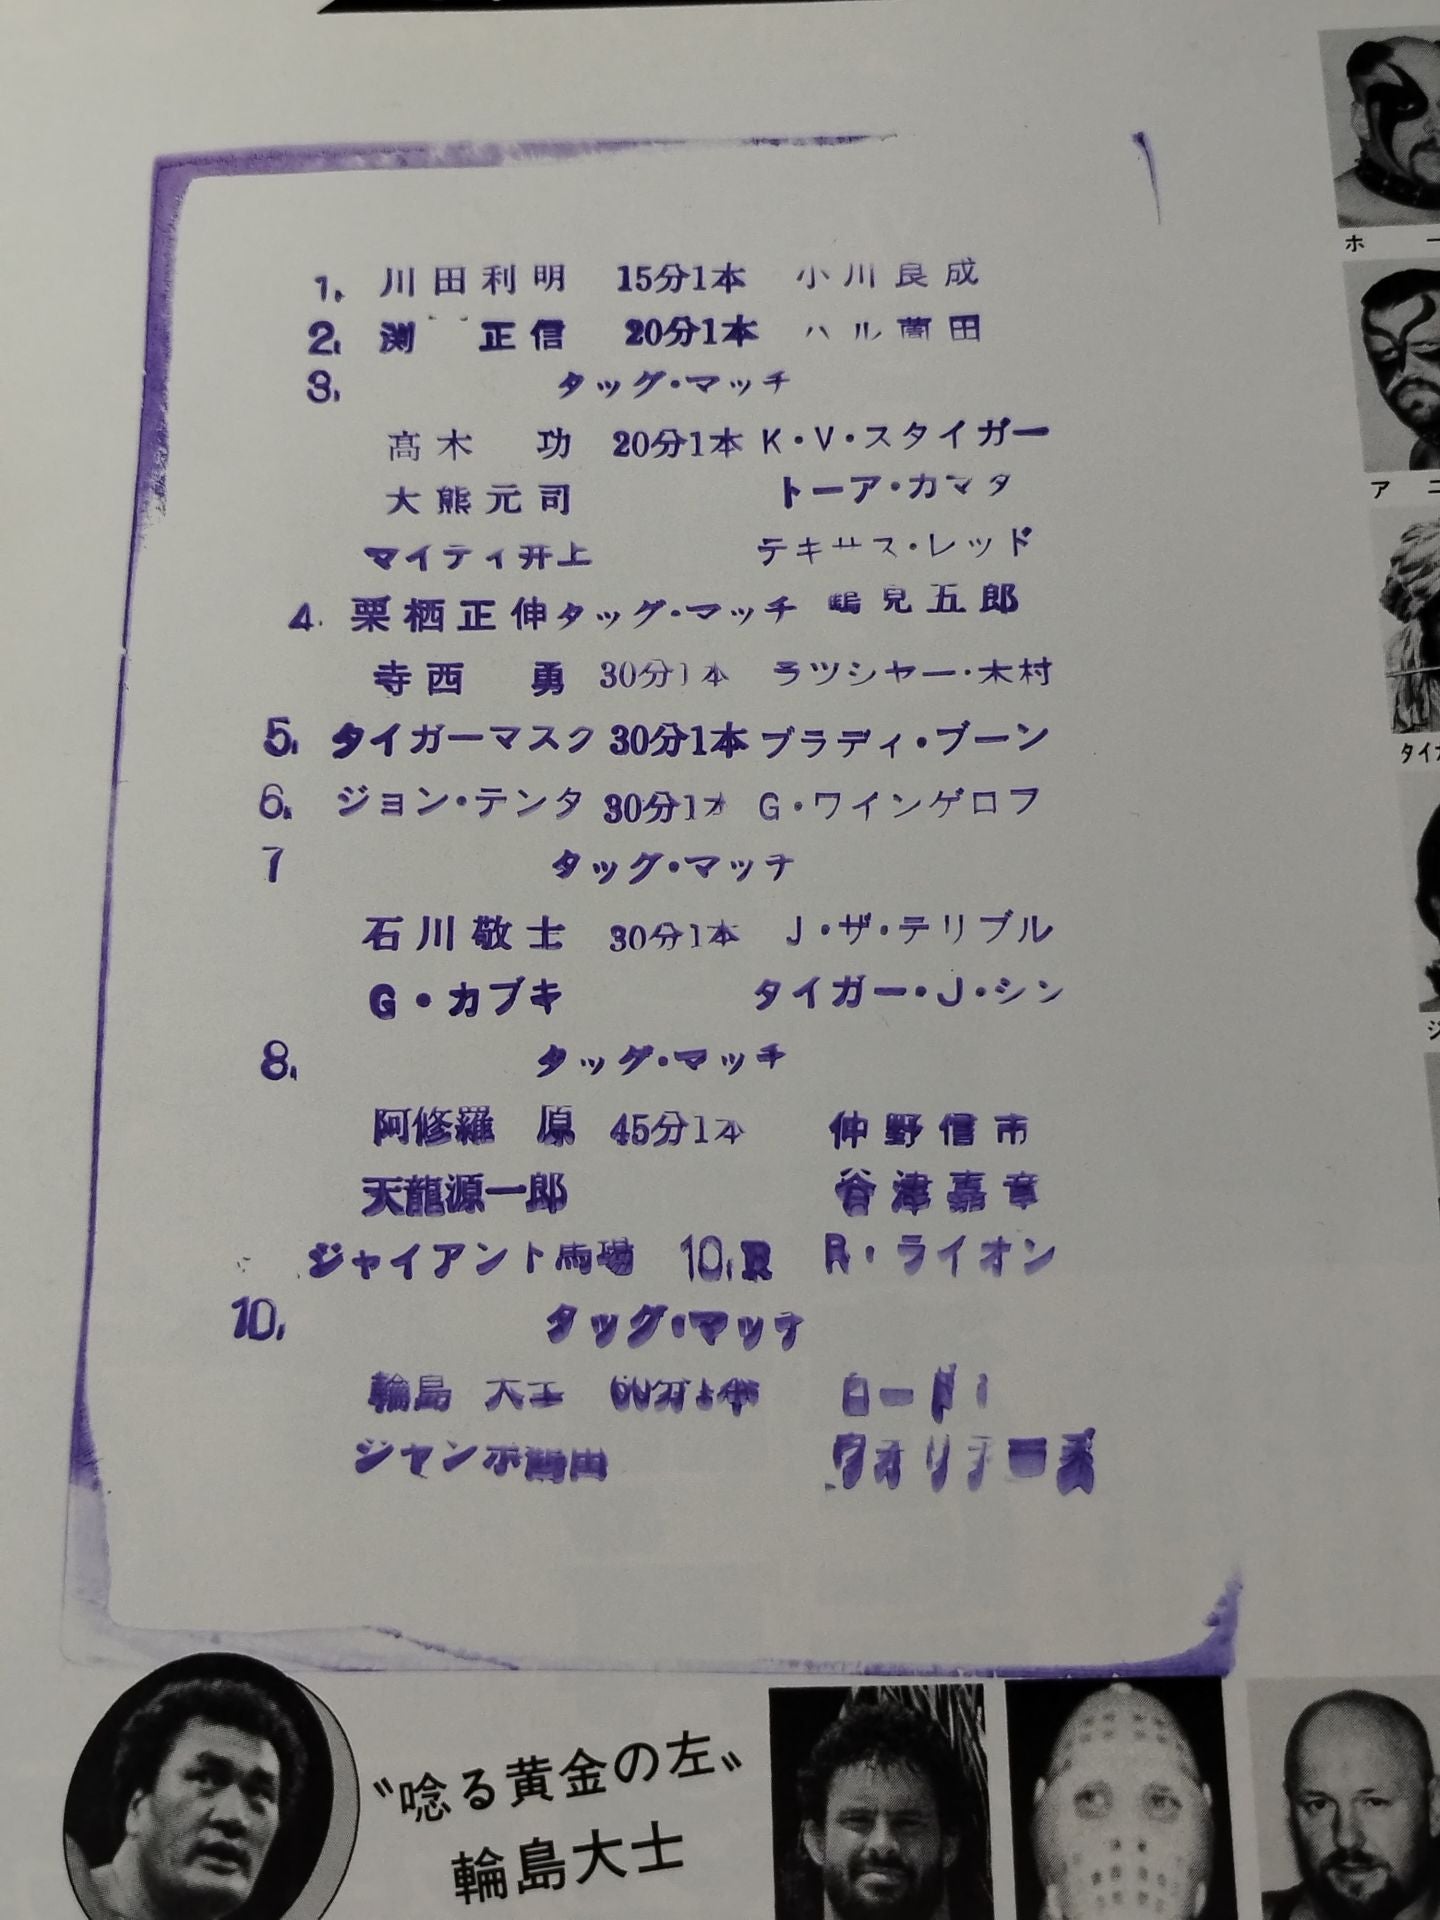 1. 川田利明 15分1本 小川良成
2. 渕 正信 20分1本 ハル薗田
3. タッグ・マッチ
高木 功 20分1本 K・V・スタイガー
大熊元司 トーア・カマタ
マイティ井上 テキサス・レッド
4. 栗栖正伸 タッグ・マッチ 鶴見五郎
寺西 勇 30分1本 ラツシヤー・木村
5. タイガーマスク 30分1本 ブラディ・ブーン
6. ジョン・テンタ 30分1本 G・ワインゲロフ
7 タッグ・マッチ
石川敬士 30分1本 J・ザ・テリブル
G・カブキ タイガー・J・シン
8. タッグ・マッチ
阿修羅 原 45分1本 仲野信市
天龍源一郎 谷津嘉章
ジャイアント馬場 10.R R・ライオン
10. タッグ・マッチ
輪島 大士 60分1本 ロード
ジャンボ鶴田 ウォリアーズ
ホー
アニ
タイガ
ジ
〝唸る黄金の左〟
輪島大士